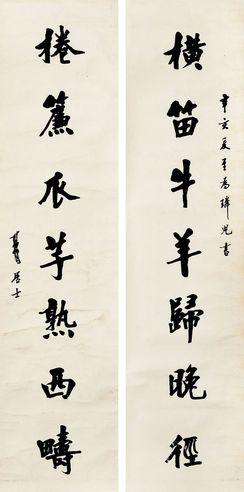 橫笛牛羊歸晚徑
辛亥夏至為瑋兄書
捲簾瓜芋熟西疇
居士